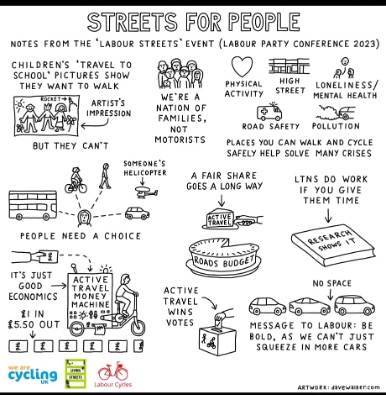 STREETS FOR PEOPLE
NOTES FROM THE 'LABOUR STREETS' EVENT (LABOUR PARTY CONFERENCE 2023)
CHILDREN'S 'TRAVEL TO
SCHOOL' PICTURES SHOW
THEY WANT TO WALK
ROCKET
ARTIST'S
IMPRESSION
BUT THEY CAN'T
WE'RE A
NATION OF
FAMILIES,
NOT
MOTORISTS
PHYSICAL
ACTIVITY
HIGH
STREET
LONELINESS/
MENTAL HEALTH
ROAD SAFETY
POLLUTION
PLACES YOU CAN WALK AND CYCLE
SAFELY HELP SOLVE MANY CRISES
SOMEONE'S
HELICOPTER
PEOPLE NEED A CHOICE
A FAIR SHARE
GOES A LONG WAY
ACTIVE
TRAVEL
ROADS BUDGET
LTNS DO WORK
IF YOU GIVE
THEM TIME
RESEARCH
SHOWS IT
£
IT'S JUST
GOOD
ECONOMICS
£1 IN
£5.50 OUT
ACTIVE
TRAVEL
MONEY
MACHINE
£ £ £ £ £ £
ACTIVE
TRAVEL
WINS
VOTES
NO SPACE
MESSAGE TO LABOUR: BE
BOLD, AS WE CAN'T JUST
SQUEEZE IN MORE CARS
we are
cycling
UK
LIVING
STREETS
Labour Cycles
ARTWORK: davewalker.com